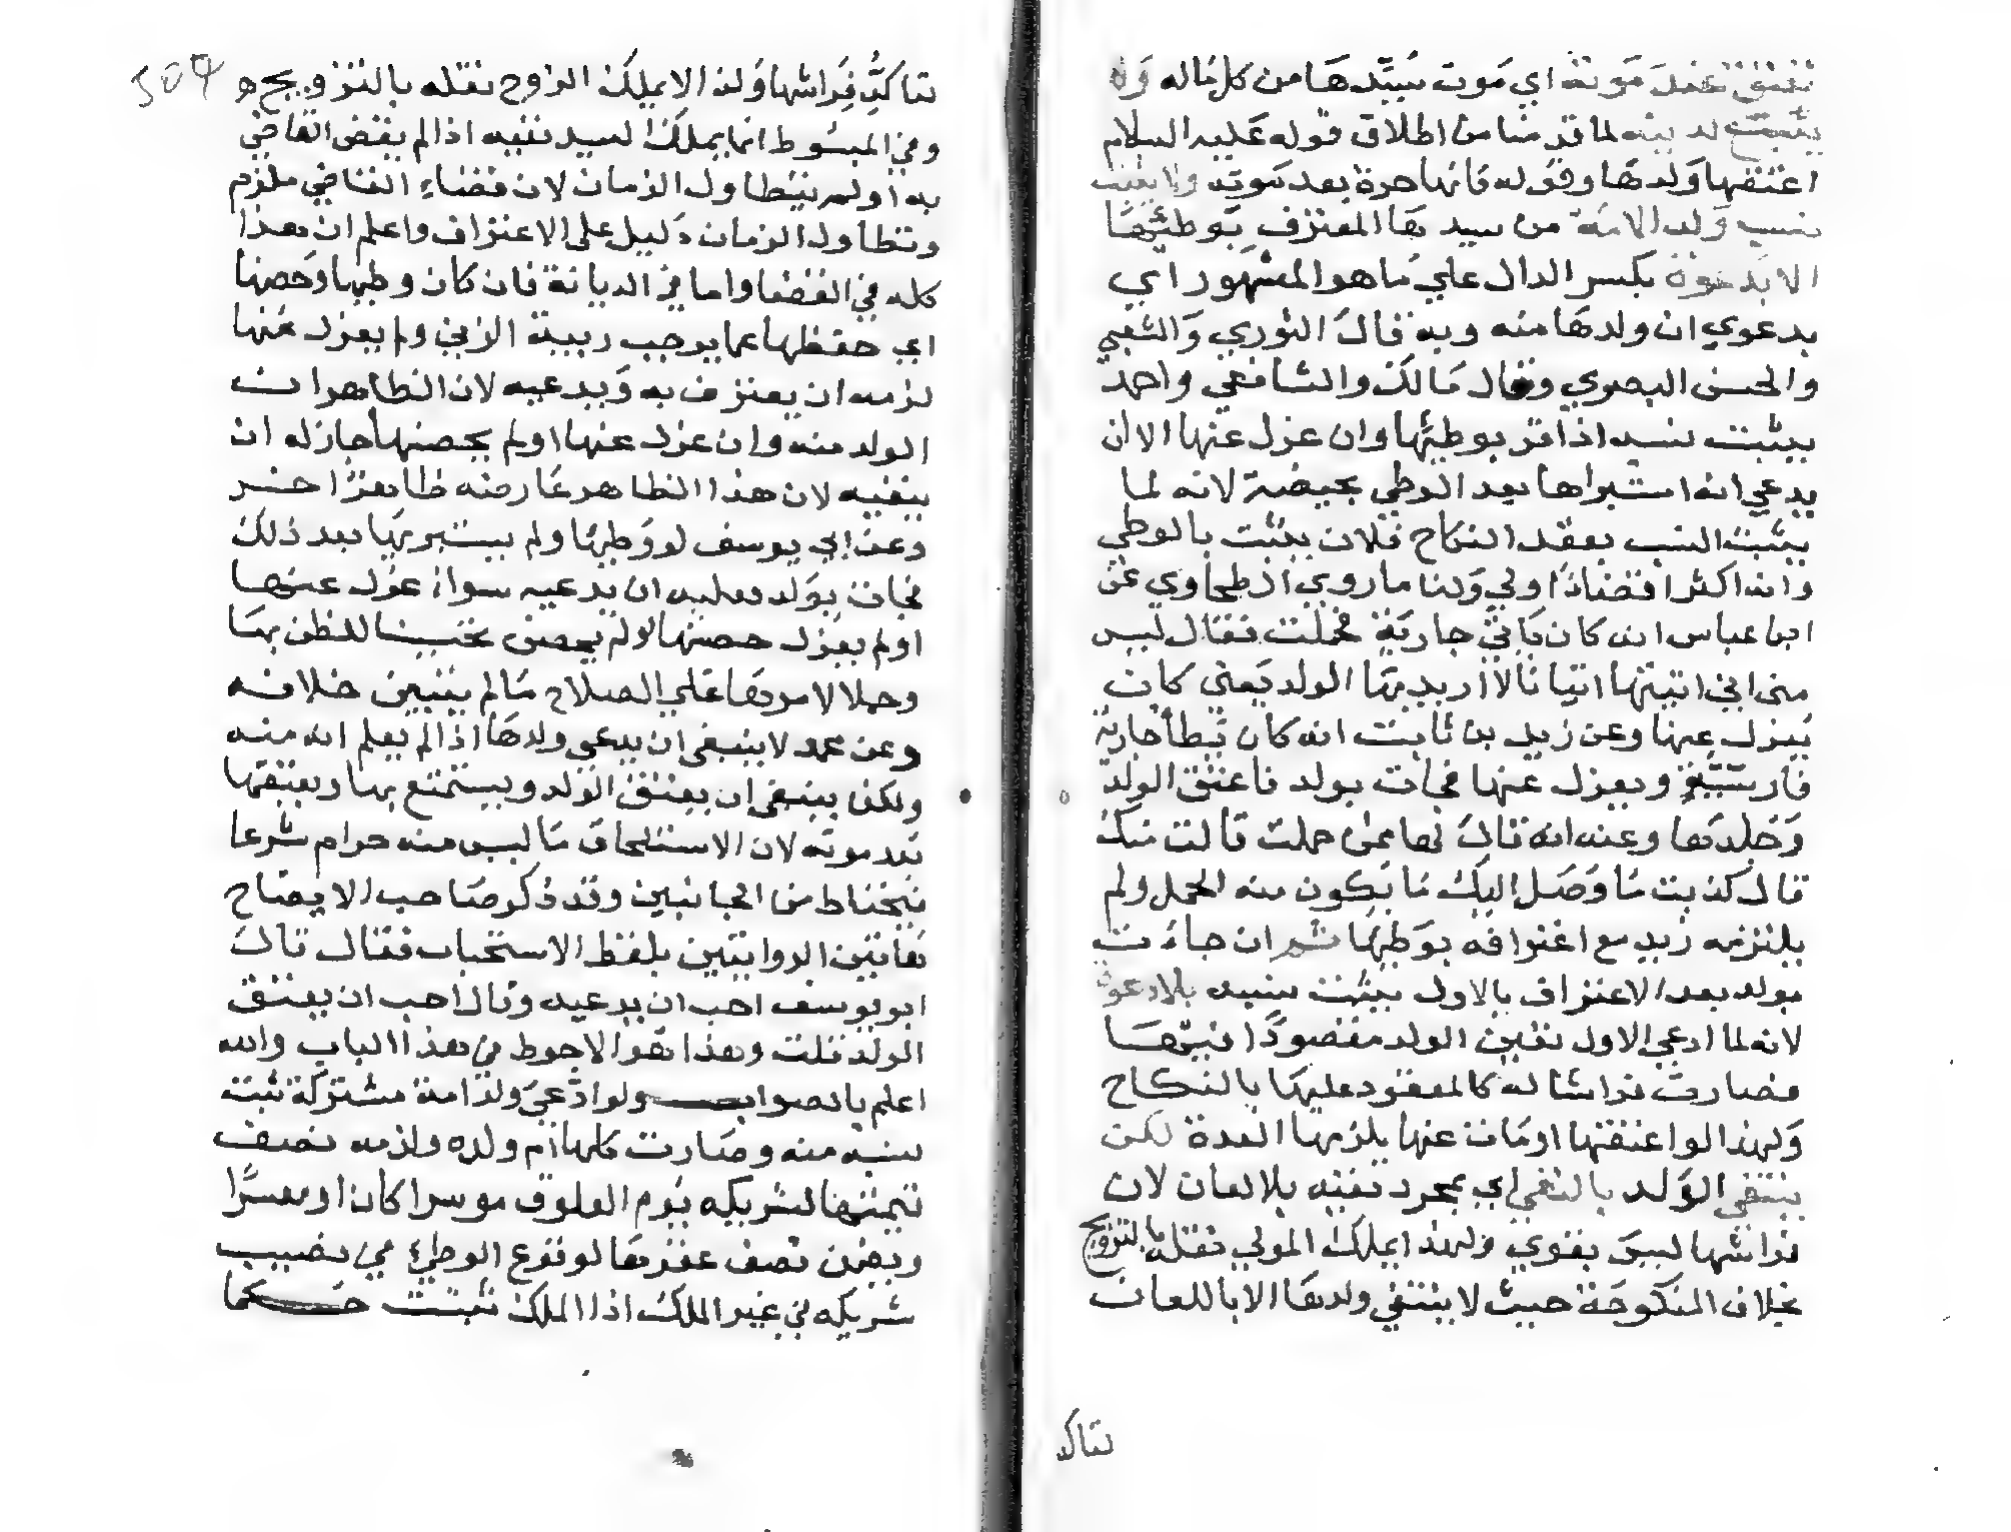 تعتق عند موته اي موت سيدها من كل ماله ولا
لدينه لما قدمنا من اطلاق قوله عليه السلام
اعتقها ولدها وقوله فانها حرة بعد موته ولا يثبت
نسب ولد الامة من سيدها المعترف بوطئها
الا بدعوة بكسر الدال علي ما هو المشهور اي
بدعوي ان ولدها منه وبه قال الثوري والشعبي
والحسن البصري وقال مالك والشافعي واحمد
يثبت نسبه اذا اقر بوطئها وان عزل عنها الا ان
يدعي انه استبراها بعد الوطي بحيضة لانه لما
يثبت النسب بعقد النكاح فلان يثبت بالوطي
وانه اكثر افضاء اولي ولنا ما روي الطحاوي عن
ابن عباس انه كان ياتي جارية فحملت فقال ليس
مني اني اتيتها اتيانا لا اريد بها الولد يعني كان
يعزل عنها وعن زيد بن ثابت انه كان يطا جارية
فارسية ويعزل عنها فجات بولد فاعتق الولد
وجلدها وعنه انه قال لها ممن حملت قالت منك
قال كذبت ما وصل اليك ما يكون منه الحمل ولم
يلتزمه زيد مع اعترافه بوطئها ثم ان جاءت
بولد بعد الاعتراف بالاول يثبت نسبه بلا دعوة
لانه لما ادعي الاول تعين الولد مقصودا فيها
فصارت فراشا له كالمعقود عليها بالنكاح
ولهذا لو اعتقها او مات عنها يلزمها العدة لكن
ينتفي الولد بالنفي اي بمجرد نفيه بلا لعان لان
فراشها ليس بقوي ولهذا يملك المولي نقله بالتزويج
بخلاف المنكوحة حيث لا ينتفي ولدها الا باللعان
تتاكد
504
تتاكد فراشها ولهذا لا يملك الزوج نقله بالتزويج ه
وفي المبسوط انما يملك السيد نفيه اذا لم يقض القاضي
به او لم يتطاول الزمان لان قضاء القاضي ملزم
وتطاول الزمان دليل علي الاعتراف واعلم ان هذا
كله في القضا واما في الديانة فان كان وطيها وحصنها
اي حفظها عما يوجب ريبة الزني ولم يعزل عنها
لزمه ان يعترف به ويدعيه لان الظاهر ان
الولد منه وان عزل عنها او لم يحصنها جاز له ان
ينفيه لان هذا الظاهر عارضه ظاهر اخر
وعن ابي يوسف لو وطيها ولم يستبريها بعد ذلك
فجات بولد فعليه ان يدعيه سواء عزل عنها
او لم يعزل حصنها او لم يحصن تحسينا للظن بها
وحملا لامرها علي الصلاح ما لم يتبين خلافه
وعن محمد لا ينبغي ان يدعي ولدها اذا لم يعلم انه منه
ولكن ينبغي ان يعتق الولد ويستمتع بها ويعتقها
بعد موته لان الاستلحاق ما ليس منه حرام شرعا
فيحتاط من الجانبين وقد ذكر صاحب الايضاح
هاتين الروايتين بلفظ الاستحباب فقال قال
ابو يوسف احب ان يدعيه وقال احب ان يعتق
الولد قلت وهذا هو الاحوط في هذا الباب والله
اعلم بالصواب ولو ادعي ولد امة مشتركة ثبت
نسبه منه وصارت كلها ام ولده ولزمه نصف
قيمتها لشريكه يوم العلوق موسرا كان او معسرا
ويضمن نصف عقرها لوقوع الوطئ في نصيب
شريكه في غير الملك اذا الملك ثبت حكما